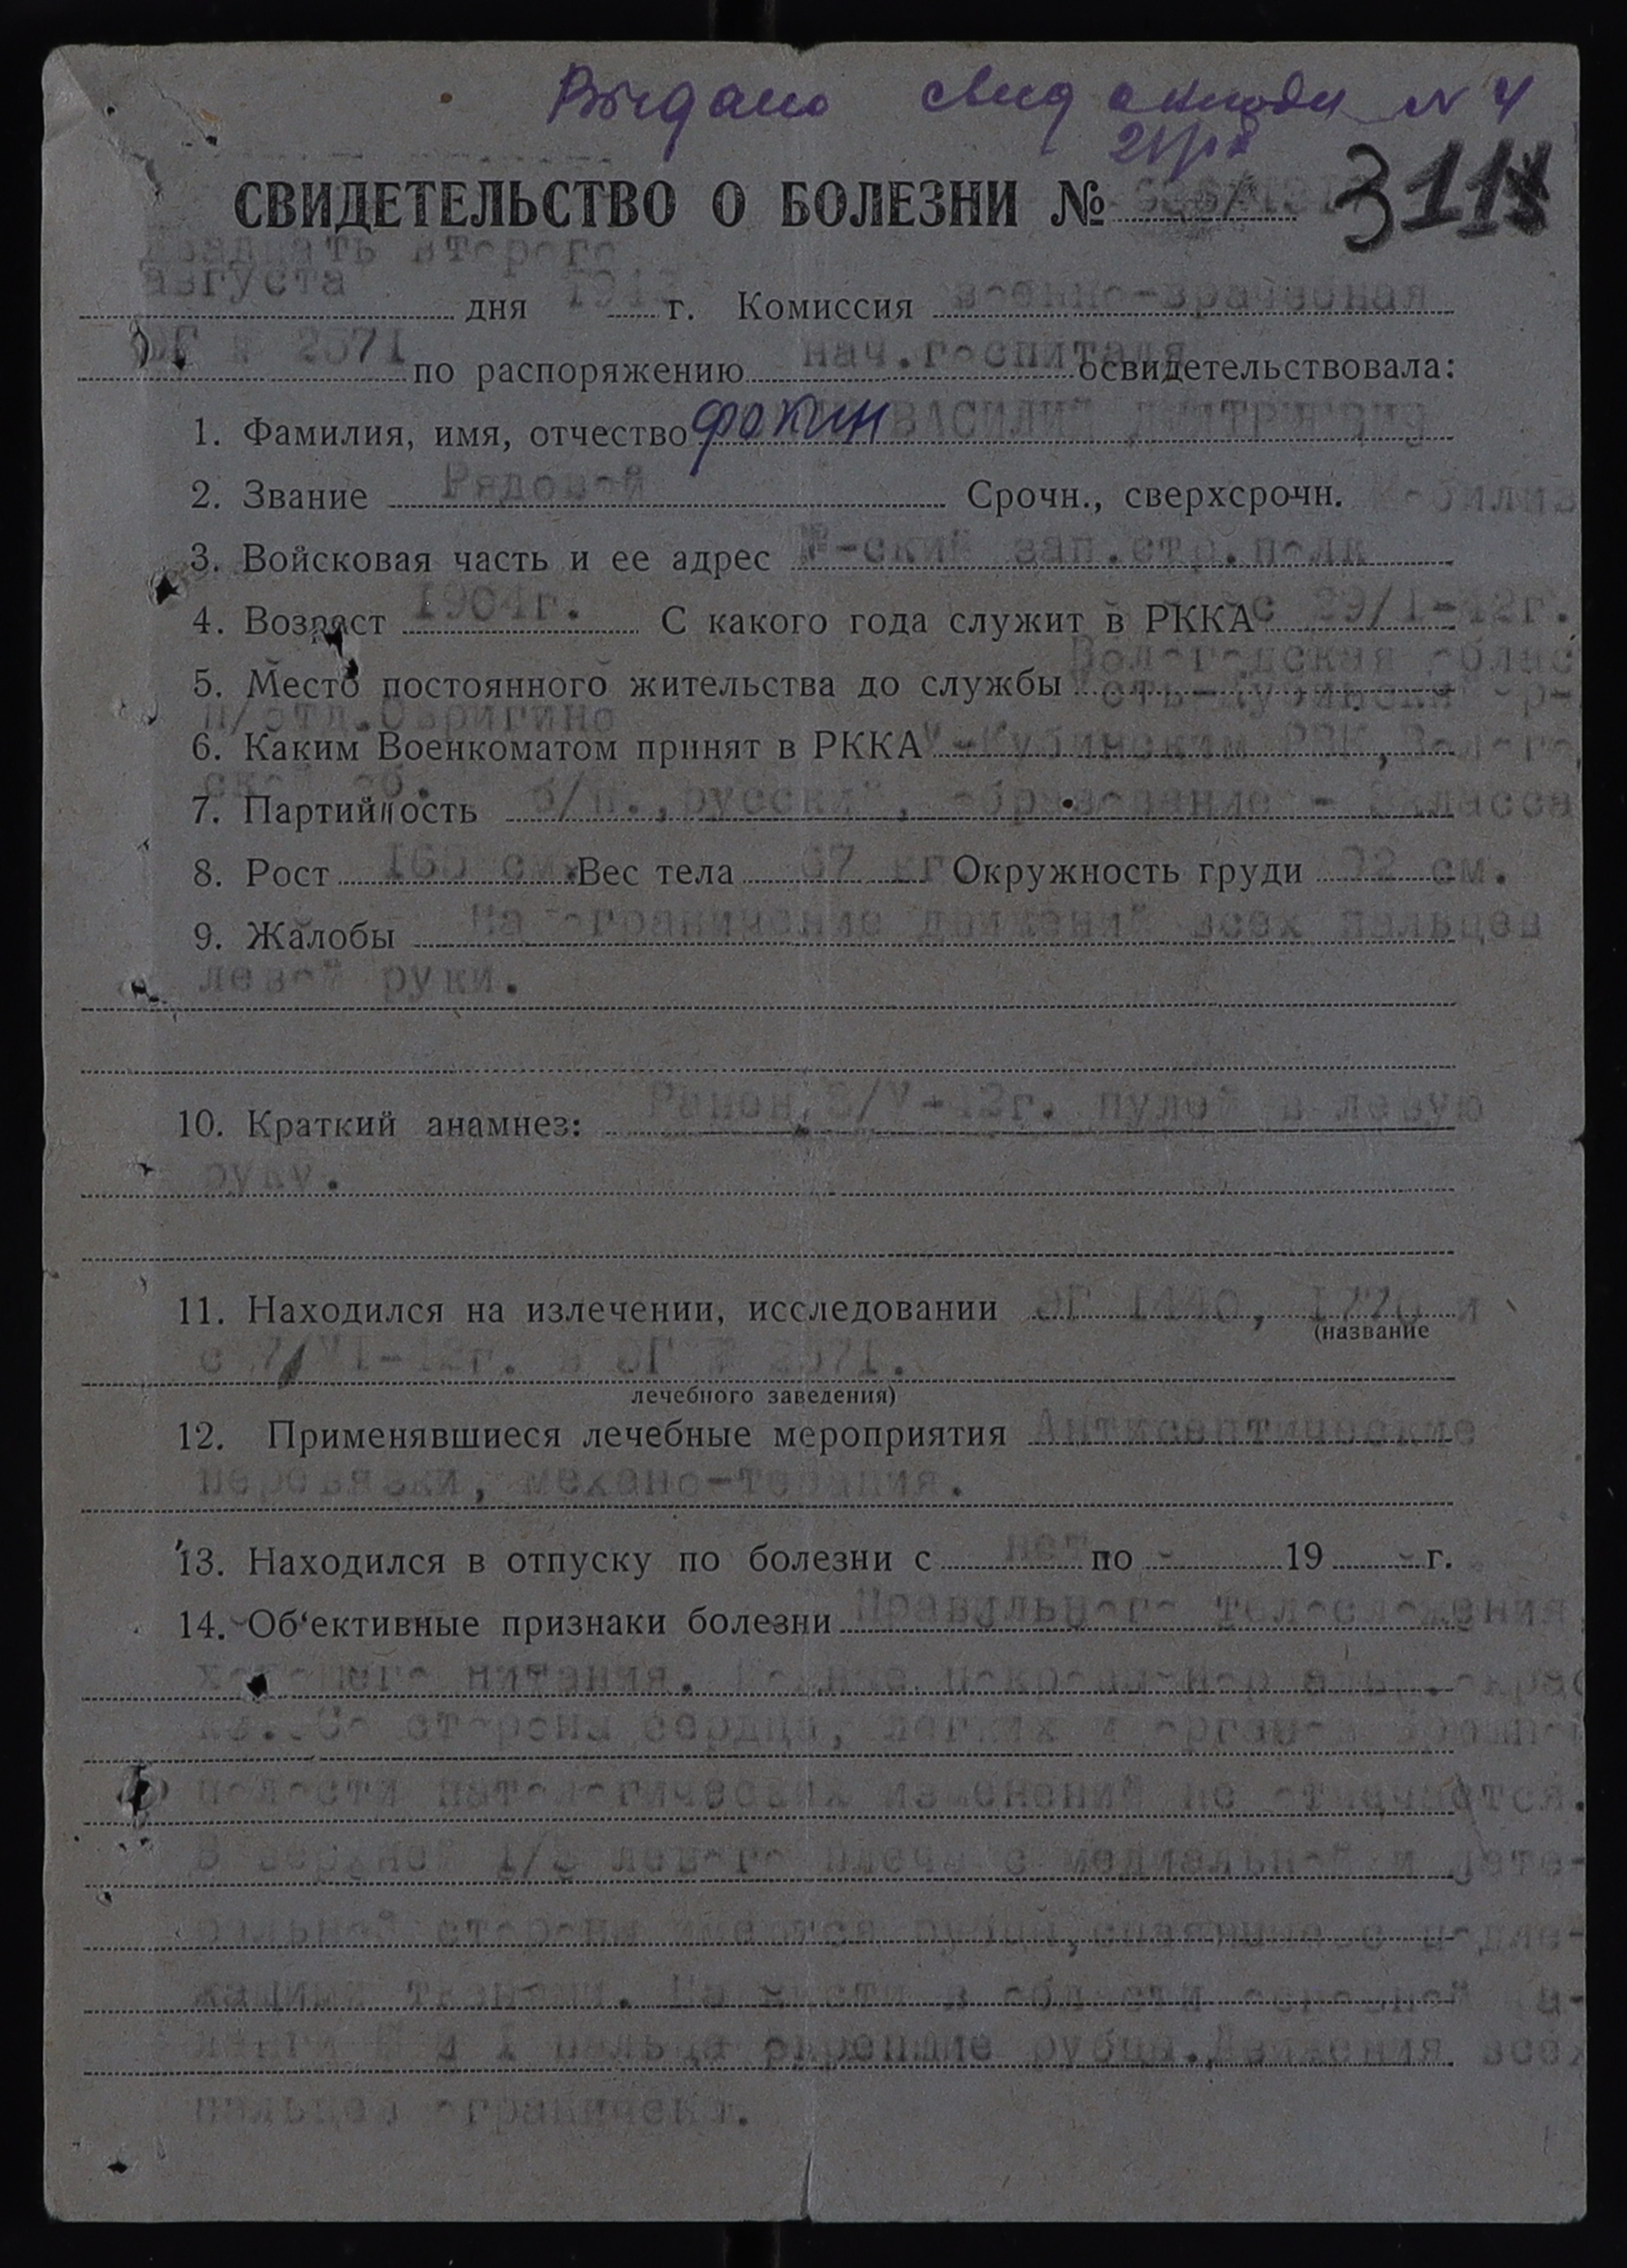 Выдано свид
СВИДЕТЕЛЬСТВО О БОЛЕЗНИ № 311
двадцать второго
августа дня г. Комиссия военно-врачебная
ЭГ № 2571 по распоряжению нач.госпиталя освидетельствовала:
1. Фамилия, имя, отчество Фокин ВАСИЛИЙ ДМИТРИЕВИЧ
2. Звание Рядовой Срочн., сверхсрочн.
3. Войсковая часть и ее адрес №-ский зап.стр.полк
4. Возраст 1904г. С какого года служит в РККА с 29/I-42г.
5. Место постоянного жительства до службы Вологодская
6. Каким Военкоматом принят в РККА У-Кубинским РВК,
7. Партийность б/п., русский, образование -
8. Рост 165 см. Вес тела 67 кг. Окружность груди 92 см.
9. Жалобы На ограничение движений всех пальцев
левой руки.
10. Краткий анамнез: Ранен 3/V-42г. пулей в левую
руку.
11. Находился на излечении, исследовании ЭГ 1440, 1770 и
(название
VI-42г. в ЭГ № 2571.
лечебного заведения)
12. Применявшиеся лечебные мероприятия Антисептические
перевязки, механо-терапия.
13. Находился в отпуску по болезни с нет по - 19 - г.
14. Об'ективные признаки болезни Правильного телосложения,
хорошего питания.
Со стороны сердца, легких и органов брюшной
полости патологических изменений не отмечается.
В верхней 1/3 левого плеча с медиальной и лате-
ральной стороны имеются рубцы, спаянные с подле-
жащими тканями. На кисти в области основной
и I пальца окрепшие рубцы. Движения всех
пальцев ограничены.